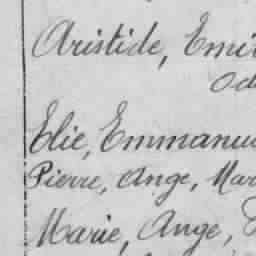 Aristide, Emi
Od
Elie, Emmanu
Pierre, Ange, Mar
Marie, Ange,